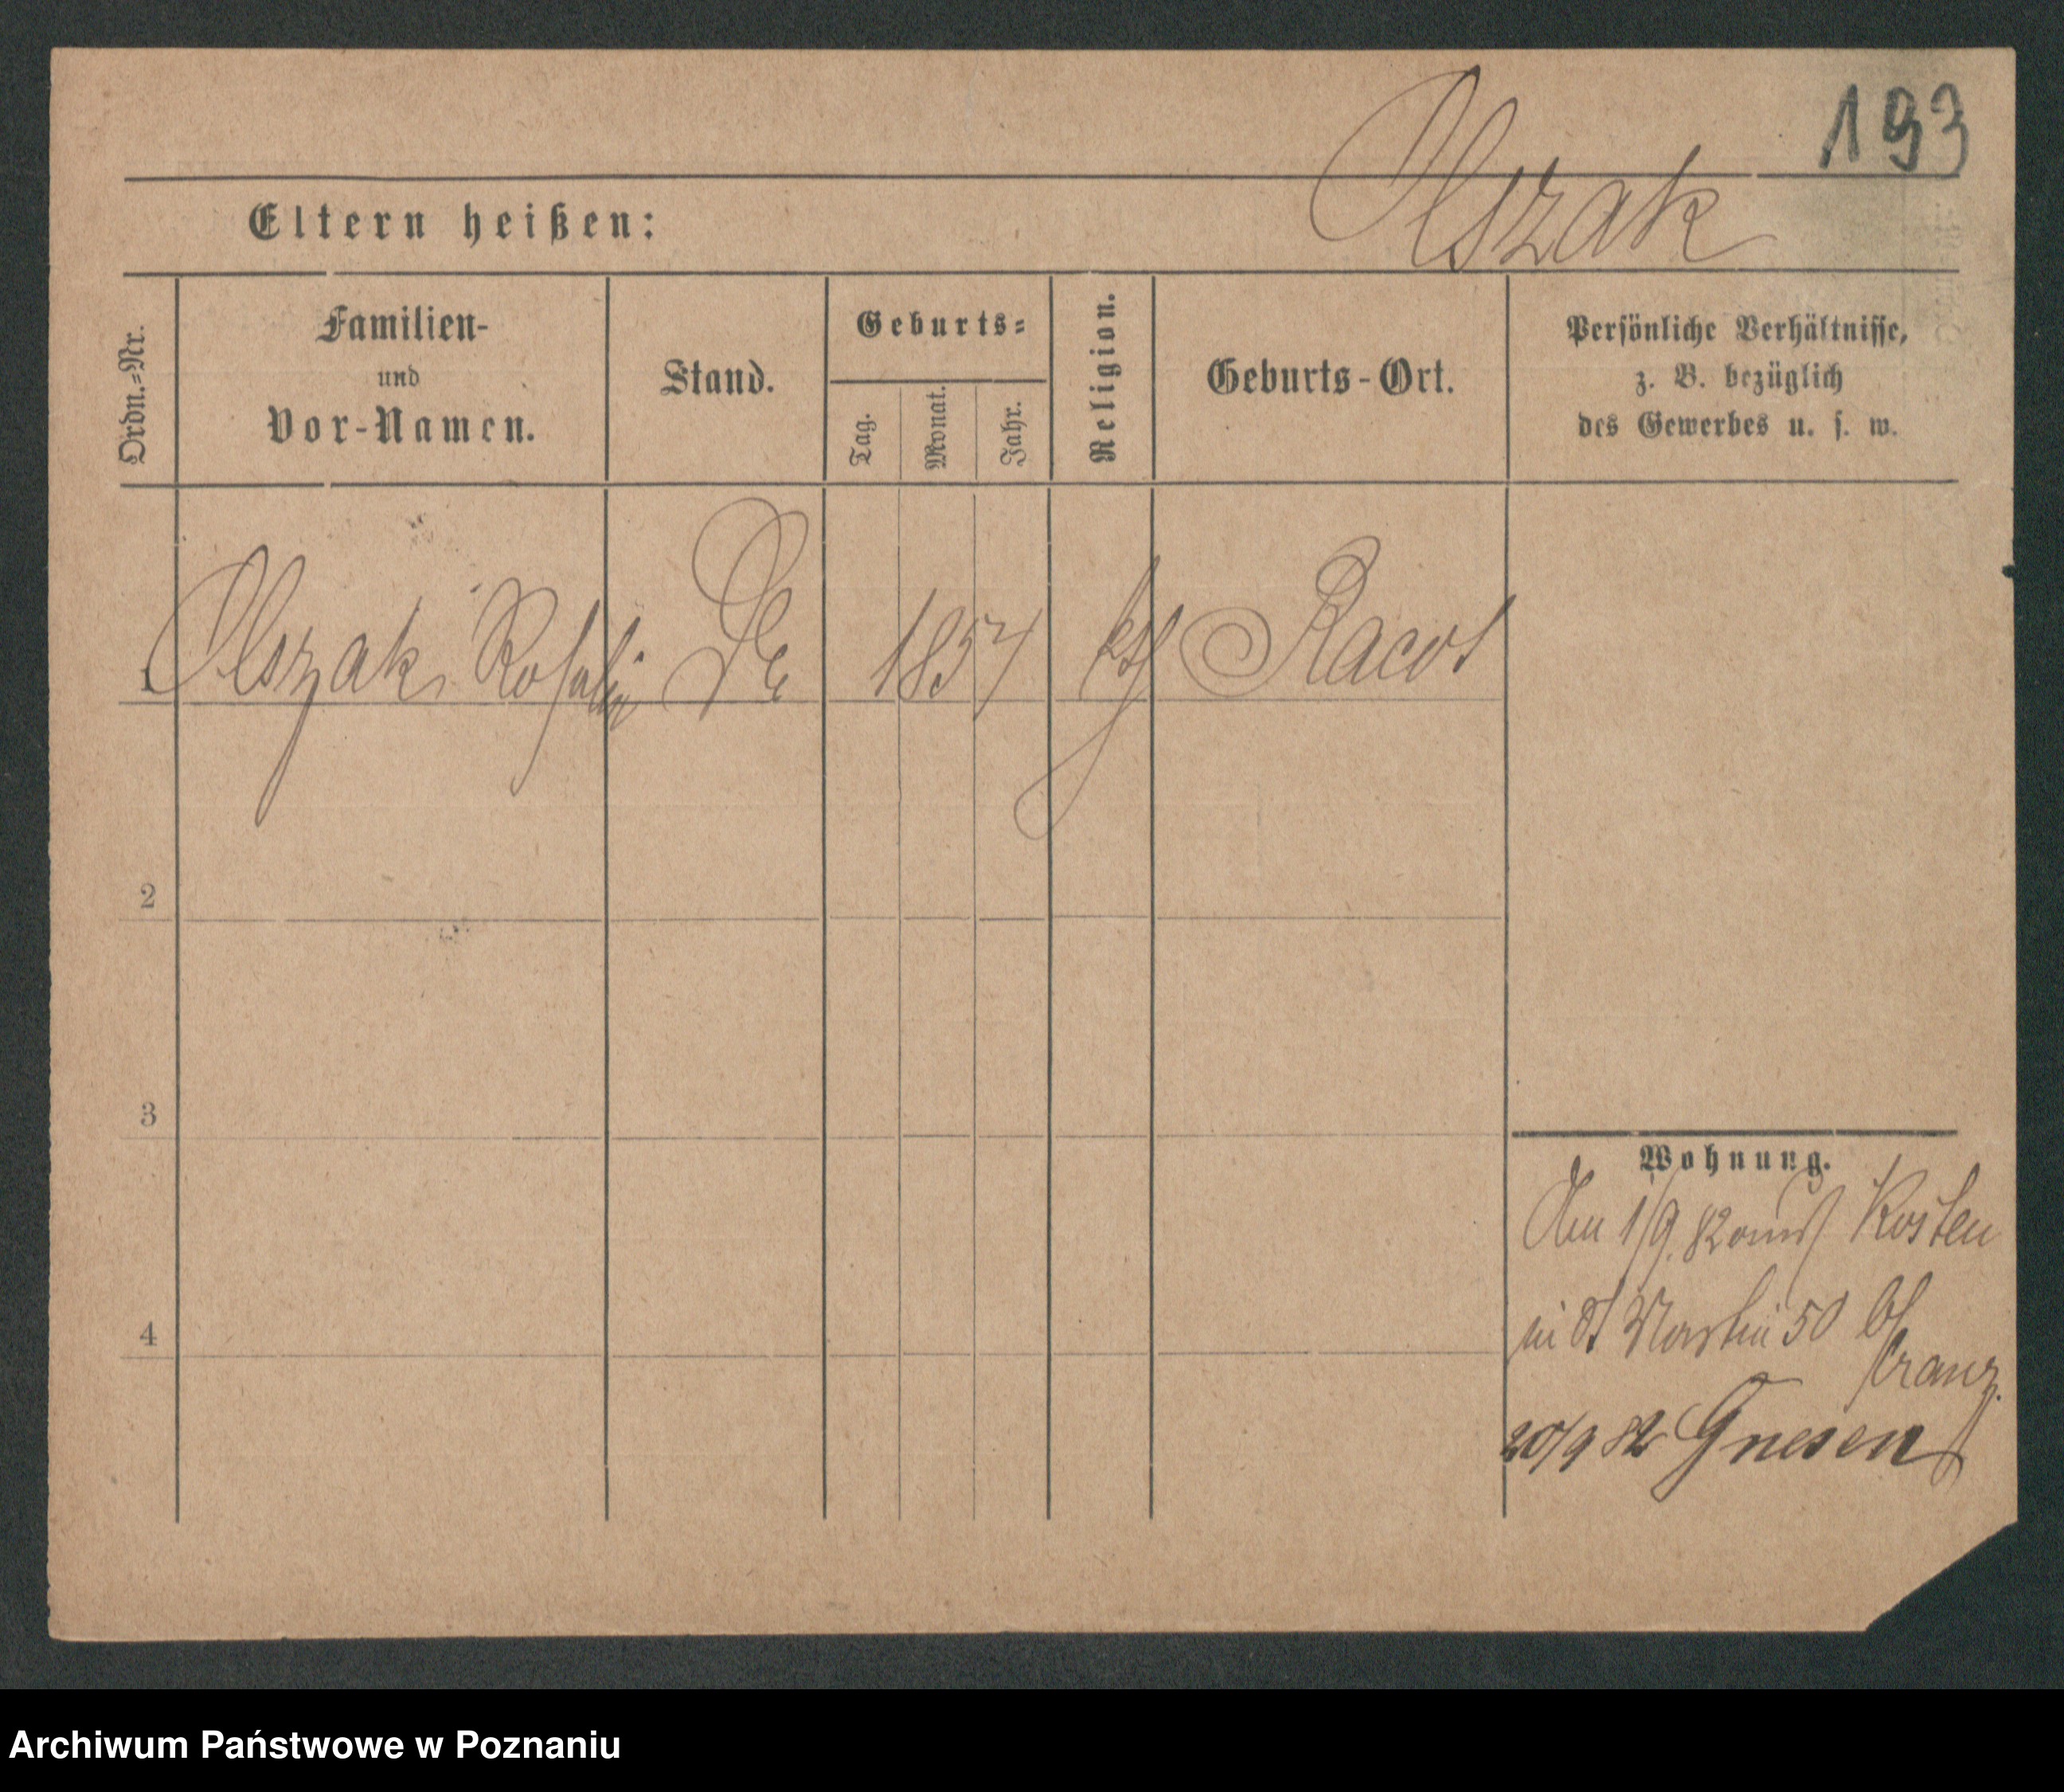 193
Olszak
Eltern heißen:
Ordn.=Nr.
Familien-
und
Vor-Namen.
Stand.
Geburts=
Tag.
Monat.
Jahr.
Religion.
Geburts-Ort.
Persönliche Verhältnisse,
z. B. bezüglich
des Gewerbes u. s. w.
1 Olszak Rosalie 1857 kth Racot
2
3
4
Wohnung.
Am 1/9. 82 aus Kosten
in St Martin 50 bei
Kranz.
20/9 82 Gnesen
Archiwum Państwowe w Poznaniu